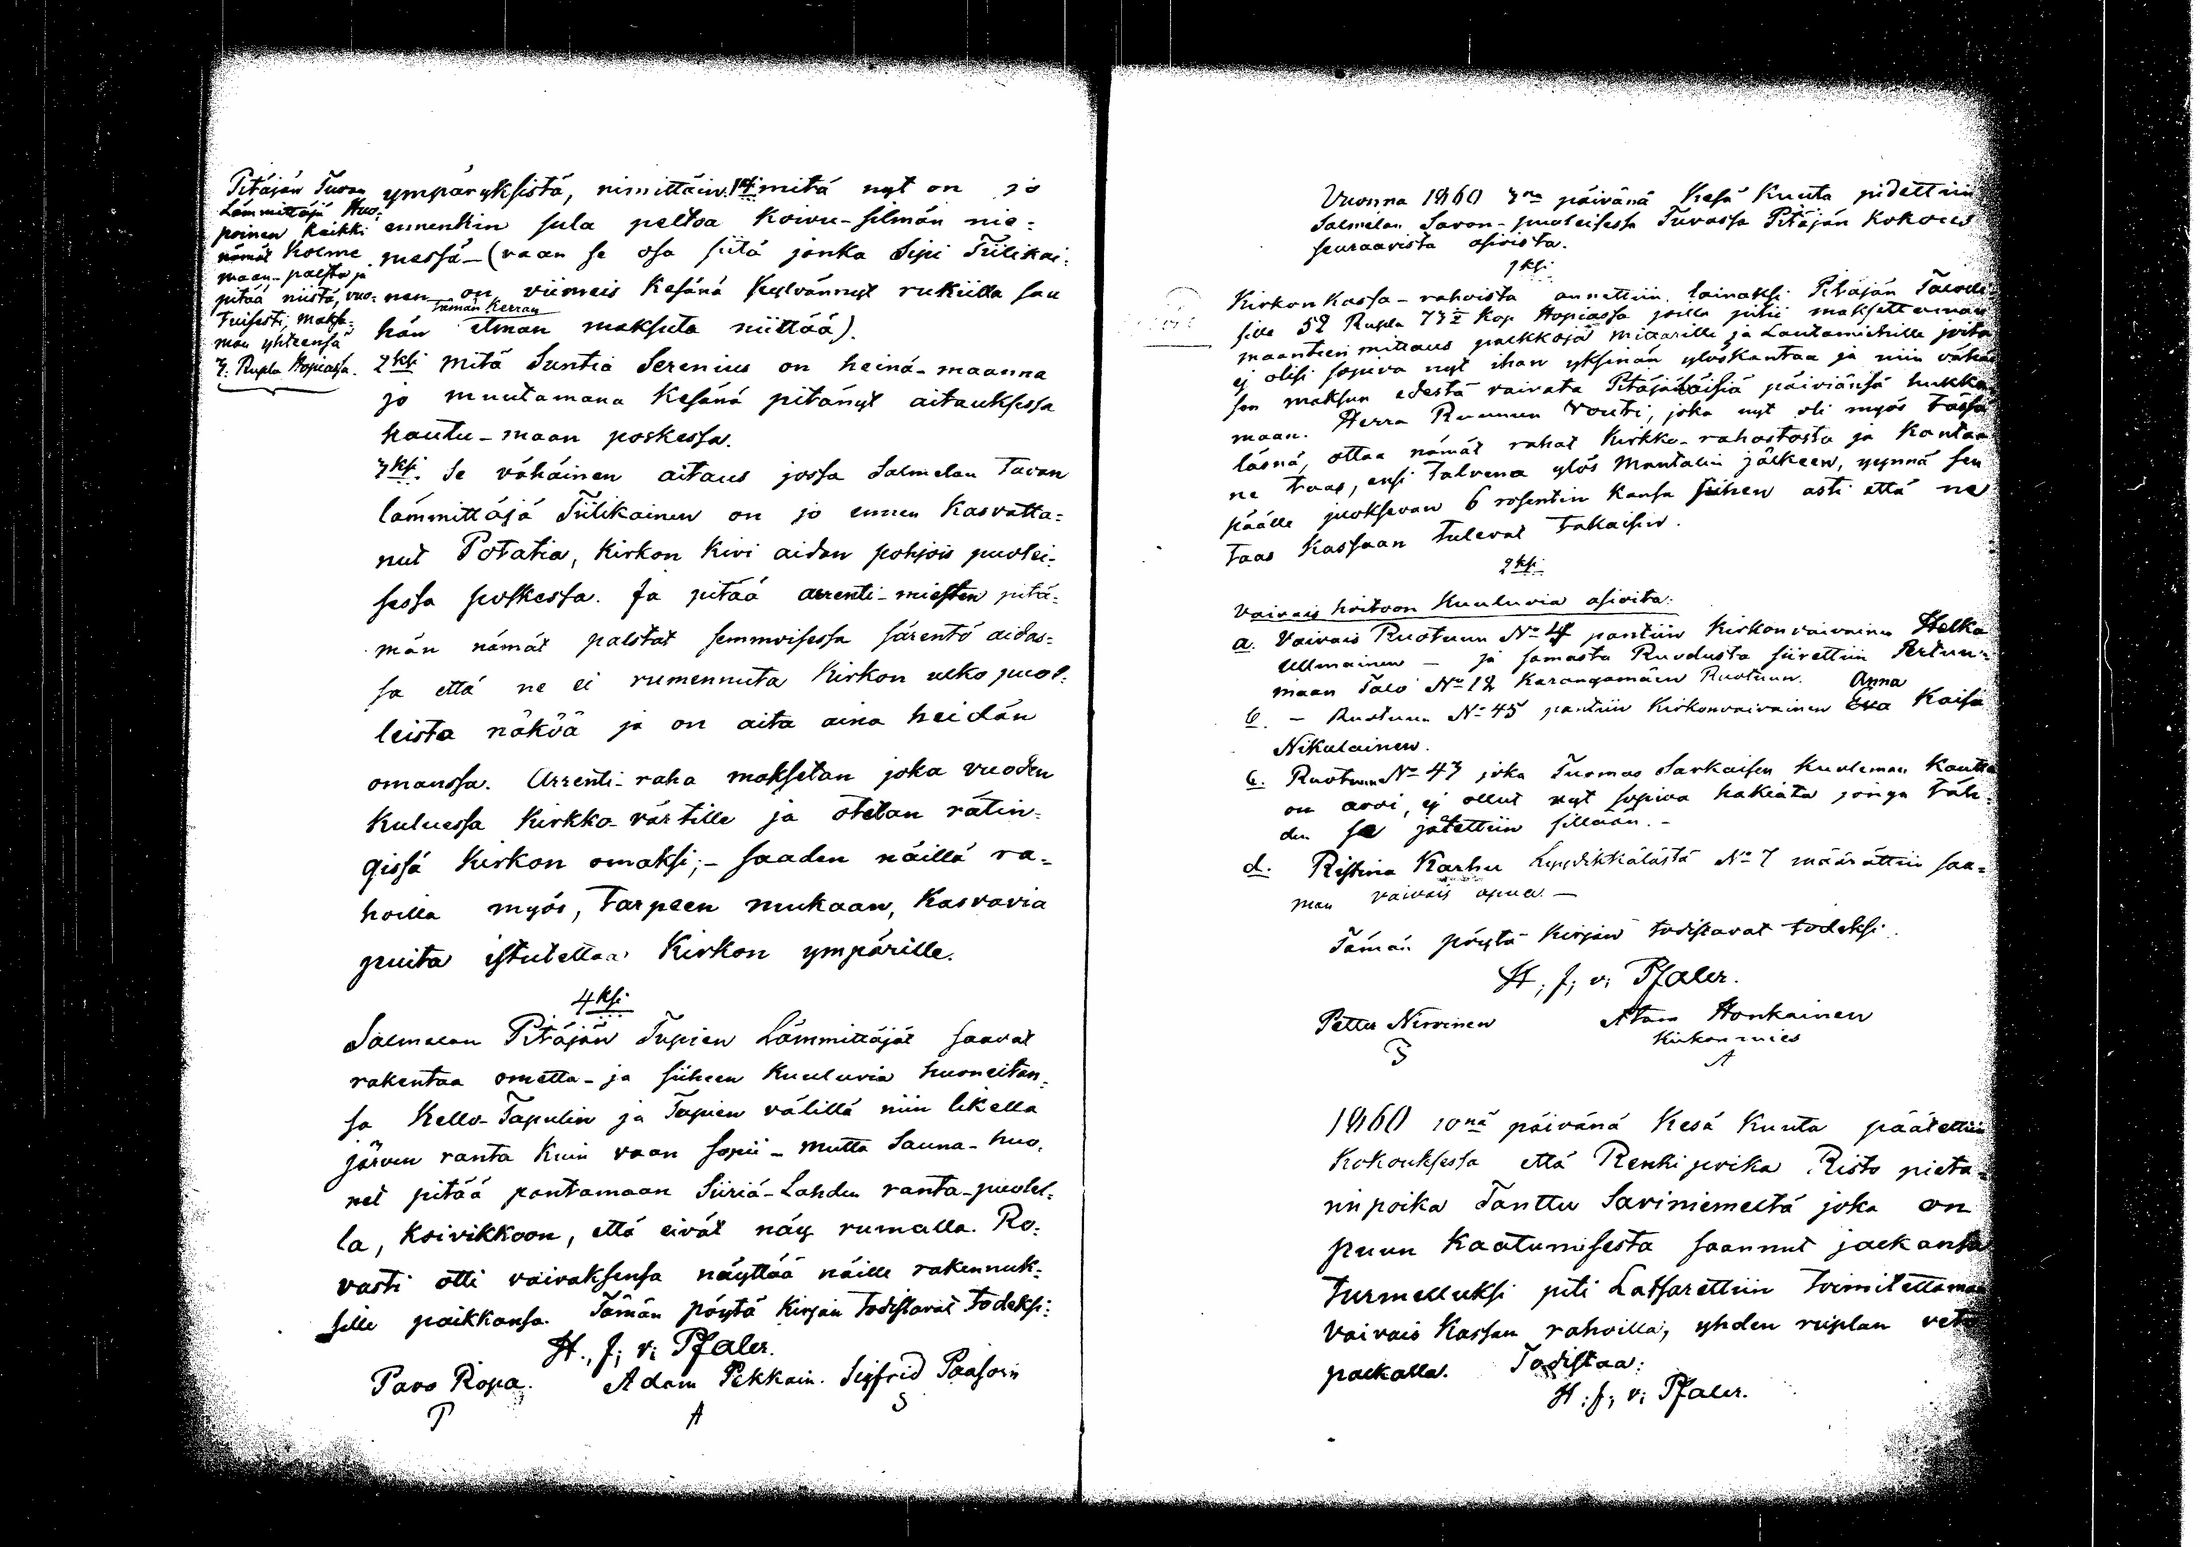 Pitäjän Tuvan
Lämmittäjä Huo-
poinen kaikki
nämät Kolme
maan-palsta ja
pitää niistä, vuo-
tuisesti, maksa-
man yhteensä
3. Rupla Hopiassa.
ympäryksistä, nimittäin. 1ksi mitä nyt on jo
ennenkin sula peltoa Koivu-silmän nie-
messä - (vaan se osa siitä jonka Sipi Tiilikai-
nen on viimeis kesänä kylvännyt rukiilla saa
tämän kerran
hän ilman maksuta niittää).
2ksi mitä Suntia Serenius on heinä-maanna
jo muutamana Kesänä pitänyt aitauksessa
hautu-maan poskessa.
3ksi. Se vähäinen aitaus jossa Salmelan Tuvan
lämmittäjä Tiilikainen on jo ennen Kasvatta-
nut Potatia, Kirkon Kivi aidan pohjois puolei-
sessa poskessa. Ja pitää arrenti-miesten pitä-
män nämät palstat semmoisessa särentö aidas-
sa että ne ei rumennuta Kirkon ulko puol-
leista näköä ja on aita aina heidän
omanssa. Arrenti-raha maksetan joka vuoden
kuluessa Kirkko-värtille ja otetan rätin-
gissä Kirkon omaksi;- saaden näillä ra-
hoilla myös, tarpeen mukaan, Kasvavia
puita istutettaa Kirkon ympärille.
4ksi
Salmelan Pitäjän Tupien Lämmittäjät saavat
rakentaa ometta- ja siihen Kuuluvia huoneitan-
sa Kello-Tapulin ja Tupien välillä niin likellä
järven ranta kuin vaan sopii - mutta Sauna-huo-
net pitää pantamaan Siiriä-Lahden ranta-puolel-
la, Koivikkoon, että eivät näy rumalla. Ro-
vasti otti vaivaksensa näyttää näille rakennuk-
sille paikkansa. Tämän pöytä Kirjan todistavat todeksi:
H. J; v; Pfaler.
Pavo Ropa. Adam Pekkain. Sigfrid Paasoin
P A S
Vuonna 1860 3na päivänä Kesä Kuuta pidettiin
Salmelan Savon-puoleisessa Tuvassa Pitäjän Kokous
seuraavista asioista.
1ksi
Kirkon Kassa-rahoista annettiin lainaksi Pitäjän Taloli-
sille 52 Rupla 73½ Kop Hopiassa joilla pitii maksettaman
maantien mittaus palkkoja mittarille ja Lautamiehille joita
ej olisi sopiva nyt ihan yksinän ylöskantaa ja niin vähä-
sen maksun edestä vaivata Pitäjäläisiä päiviänsä hukka-
maan. Herra Ruunun Vouti, joka nyt oli myös tässä
läsnä, ottaa nämät rahat Kirkko-rahastosta ja Kantaa
ne taas, ensi talvena ylös Mantalin jälkeen, ynnä sen
päälle juoksevan 6 rosentin kansa siihen asti että ne
taas Kassaan tulevat takaisin.
2ksi
Vaivais hoitoon Kuuluvia asioita:
a. Vaivais Ruotuun No 4 pantiin Kirkonvaivainen Helka
Ullmainen - ja samasta Ruodusta siirettiin Pertun-
maan Talo No 12 Karangamäen Ruotuun.
Anna
b. - Ruotuun No 45 pantiin Kirkonvaivainen Eva Kaisa
Nikulainen.
c. Ruotuun No 43 joka Tuomas Sarkaisen Kuoleman Kautta
on avoi, ej ollut nyt sopiva hakiata jonga täh-
den se jätettiin sillään. -
d. Ristina Karhu No 7 määrättiin saa-
man vaivais apua. -
Tämän pöytä Kirjan todistavat todeksi.
H; J; v; Pfaler.
Petter Nirvinen Atam Honkainen
Kirkonmies
A
1860 10nä päivänä Kesä Kuuta päätettiin
Kokouksessa että Renki poika Risto pieta-
rinpoika Tanttu Saviniemeltä joka on
puun Kaatumisesta saannut jalkansa
turmelluksi piti Latsarettiin toimitettaman
Vaivais Kassan rahoilla, yhden ruplan veto
palkalla. Todistaa:
H: J; v; Pfaler.